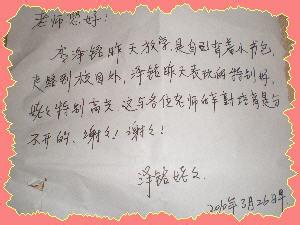 老师您好:
李泽铭昨天放学是自己背着小书包
走路到校门外、泽铭昨天表现的特别好、
姥々特别高兴 这与各位老师的辛勤培育是分
不开的、谢々! 谢々!
泽铭姥々
2010年3月26日早